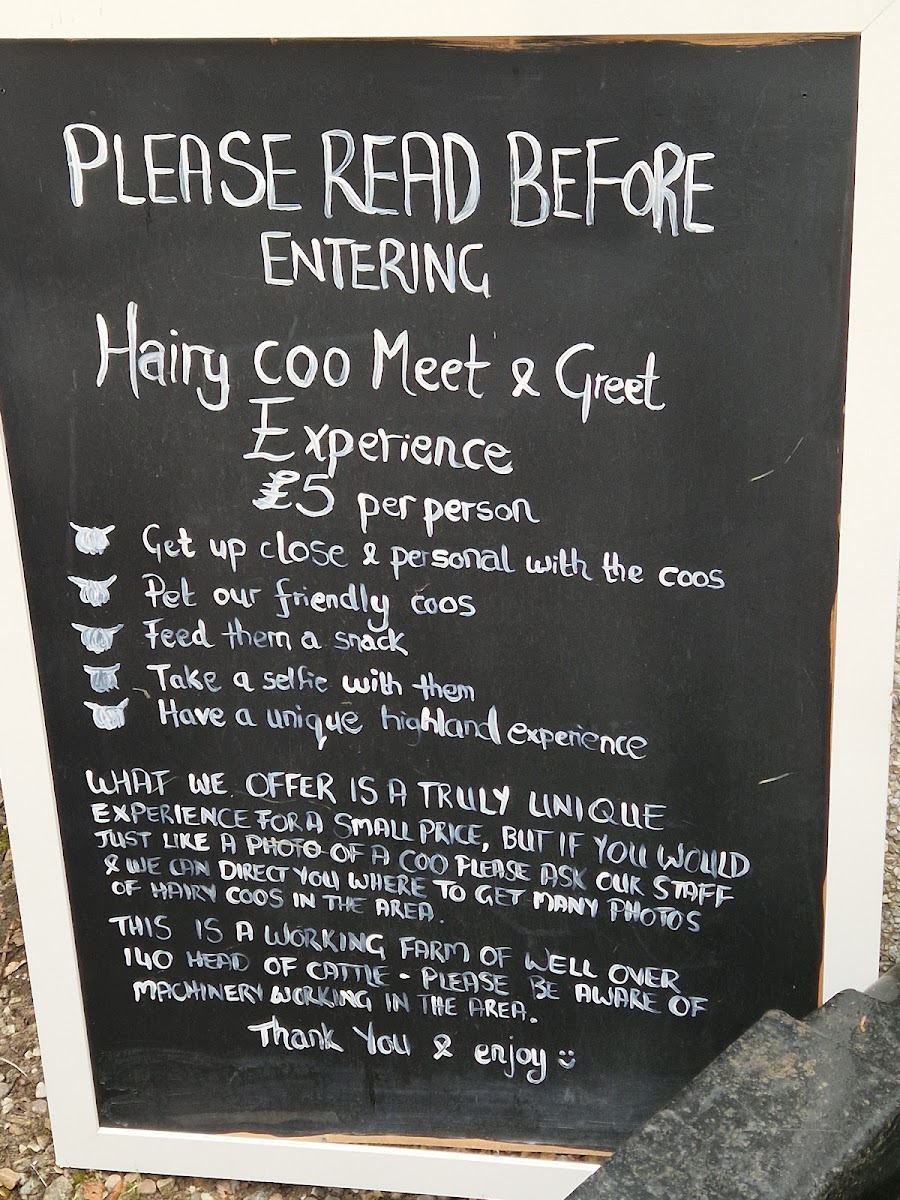 PLEASE READ BEFORE
ENTERING
Hairy coo Meet & Greet
Experience
£5 per person
Get up close & personal with the coos
Pet our friendly coos
Feed them a snack
Take a selfie with them
Have a unique highland experience
WHAT WE OFFER IS A TRULY UNIQUE
EXPERIENCE FOR A SMALL PRICE, BUT IF YOU WOULD
JUST LIKE A PHOTO OF A COO PLEASE ASK OUR STAFF
& WE CAN DIRECT YOU WHERE TO GET MANY PHOTOS
OF HAIRY COOS IN THE AREA.
THIS IS A WORKING FARM OF WELL OVER
140 HEAD OF CATTLE - PLEASE BE AWARE OF
MACHINERY WORKING IN THE AREA.
Thank You & enjoy :)